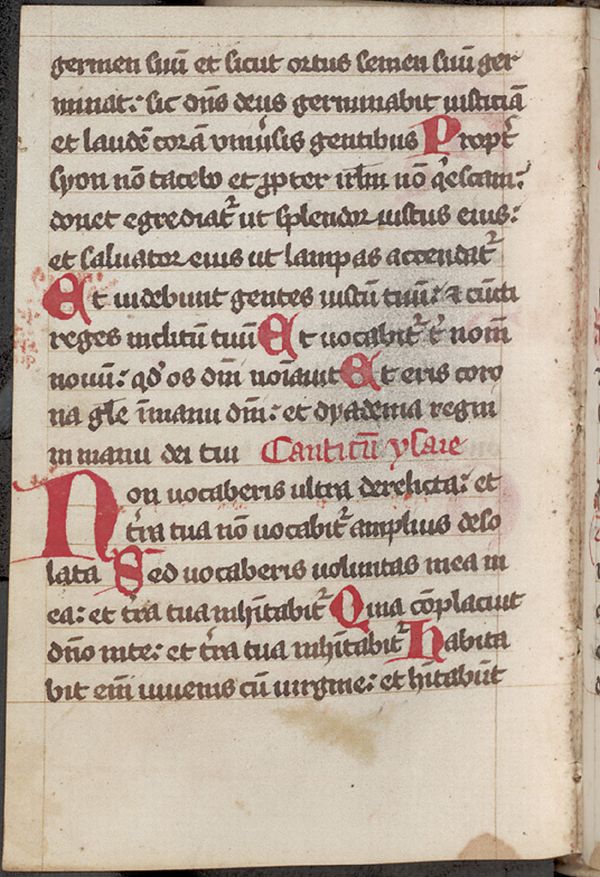 germen suū et sicut ortus semen suū ger
minat: sic dn̄s deus germinabit iusticiā
et laudē corā vniu̓sis gentibus Propt̓
syon nō tacebo et ꝓpter irl̄m nō q̓escam:
donec egrediat̉ ut splendor iustus eius:
et saluator eius ut lampas accendat̉
Et uidebunt gentes iustū tuū: ⁊ cūcti
reges inclitū tuū Et uocabit̉ t̓ nom̄
nouū: qd̓ os dn̄i noīauit Et eris coro
na gl̄e īmanu dn̄i: et dyadema regni
in manu dei tui Canticū ysaie
Non uocaberis ultra derelicta: et
t̓ra tua nō uocabit̉ amplius deso
lata Sed uocaberis uoluntas mea in
ea: et t̓ra tua inhītabit̉ Quia cōplacuit
dn̄o inte: et t̓ra tua inhītabit̉ Habita
bit eni̅ iuuenis cū uirgine: et hītabūt